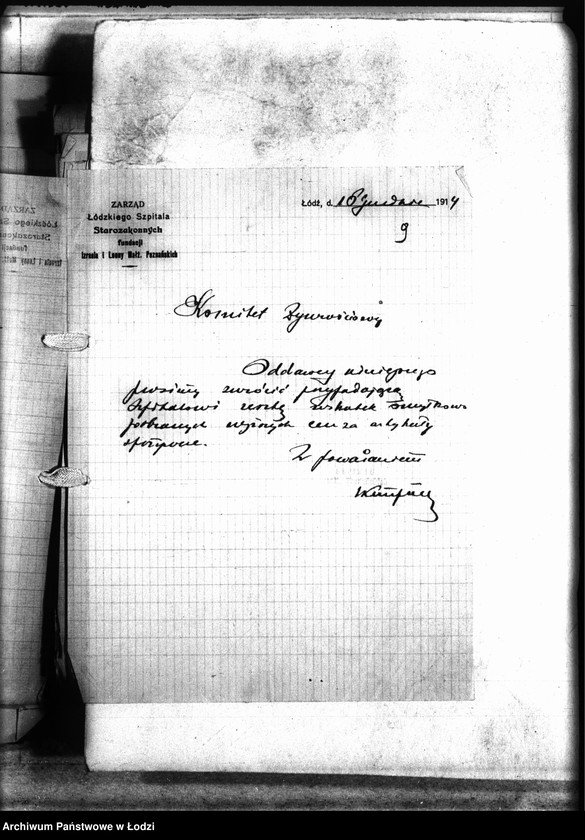 ZARZĄD
Łódzkiego Szpitala
Starozakonnych
fundacji
Izraela i Leony Małż. Poznańskich
Łódź, d. 16 grudnia 1914
9
Komitet Żywnościowy
Oddawcy niniejszego
prosimy zwrócić przypadającą
Szpitalowi resztę wskutek omyłkowo
pobranych wyższych cen za artykuły
spożywcze.
Z poważaniem
Archiwum Państwowe w Łodzi